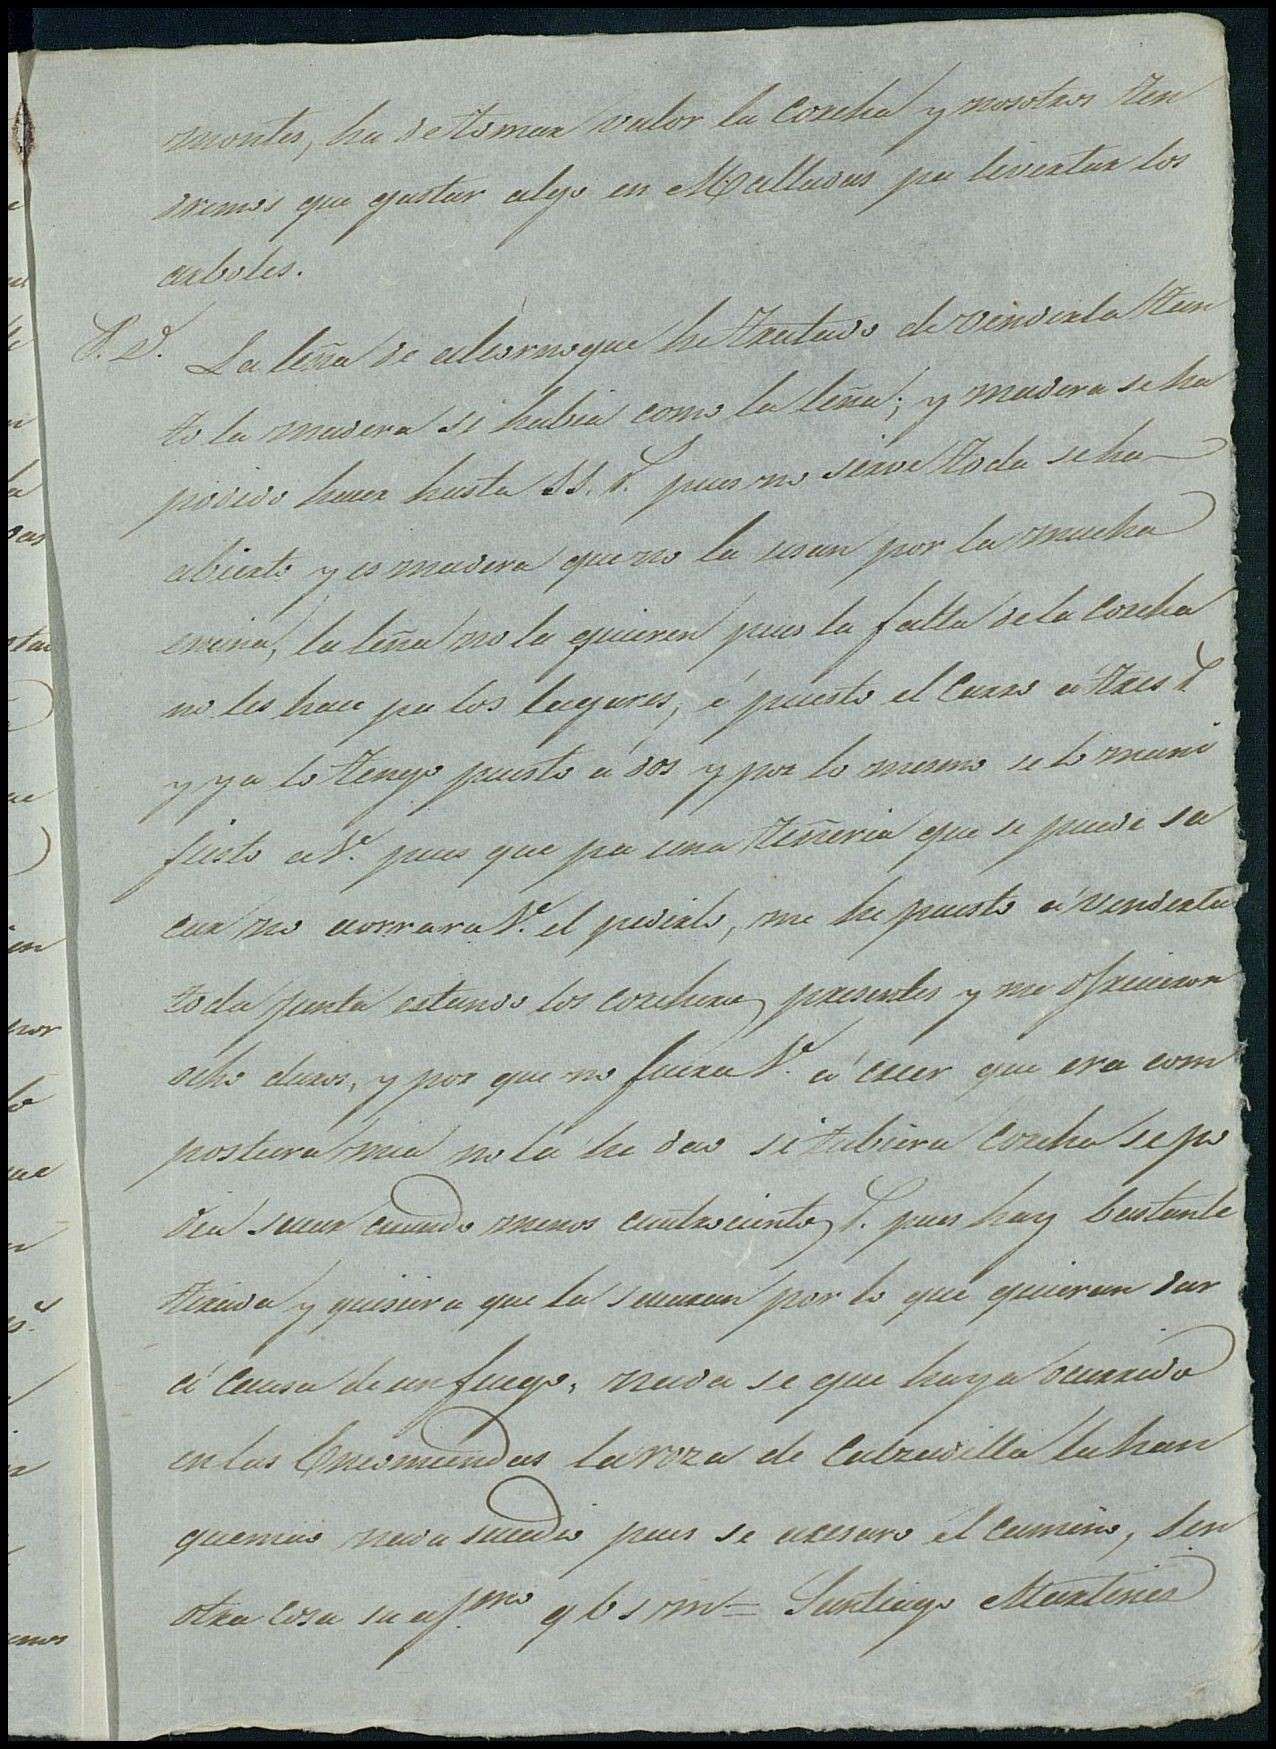 montes, ha de tomar valor la Corcha y nosotros ten
dremos que gastar algo en Malladas pa livertar los
arboles.
P. D. La leña de alcornoque he tratado de venderla tan
to la madera si habia como la leña; y madera se ha
podido hacer hasta pues no sirve toda se ha
abierto y es madera que no la usan por la mucha
encina, la leña no la quieren pues la falta de la Corcha
no les hace pa los lagares, é puesto el Carro á tres
y ya lo tengo puesto á dos y por lo mesmo se lo mani
fiesto a V. pues que pa una teñeria que se puede sa
car no aorrara V. el pedirlo, me he puesto á venderla
toda junta estando los corcheros presentes y me ofrecieron
ocho duros, y por que no fuera V. á creer que era com
postura mia no la he dao si tubiera Corcha se po
dia sacar cuando menos cuatrocientos pues hay bastante
tirada y quisiera que la sacaran por lo que quieran dar
á causa de un fuego, nada se que haya ocurrido
en las Encomiendas la roza de Calzadilla la han
quemao nada sucedio pues se el camino, sin
otra cosa su afmo q b s m = Santiago Martines